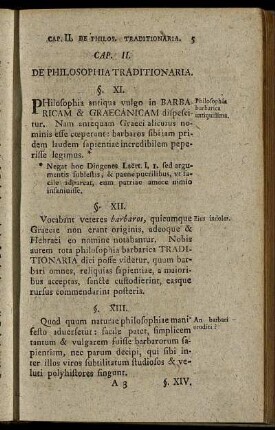 CAP. II. DE PHILOS. TRADITIONARIA. 5
CAP. II.
DE PHILOSOPHIA TRADITIONARIA.
§. XI.
PHilosophia antiqua vulgo in BARBA-
RICAM & GRAECANICAM dispesci-
tur. Nam antequam Graeci alicuius no-
minis esse coeperunt: barbares sibi iam pri-
dem laudem sapientiae incredibilem pepe-
risse legimus. *
Philosophia
barbarica
antiquissima.
* Negat hoc Diogenes Laert. I, 1. sed argu-
mentis sublestis, & paene puerilibus, ut fa-
cile adpareat, eum patriae amore nimio
insanivisse.
§. XII.
Vocabant veteres barbaros, quicumque
Graecie non erant originis, adeoque &
Hebraei eo nomine notabantur. Nobis
autem tota philosophia barbarica TRADI-
TIONARIA dici posse videtur, quum bar-
bari omnes, reliquias sapientiae, a maiori-
bus acceptas, sancte custodierint, easque
rursus commendarint posteris.
Eius indoles.
§. XIII.
Quod quum naturae philosophiae mani-
festo adversetur: facile patet, simplicem
tantum & vulgarem fuisse barbarorum sa-
pientiam, nec parum decipi, qui sibi in-
ter illos viros subtilitatum studiosos & ve-
luti polyhistores fingunt.
An barbari
eruditi?
A 3 §. XIV.